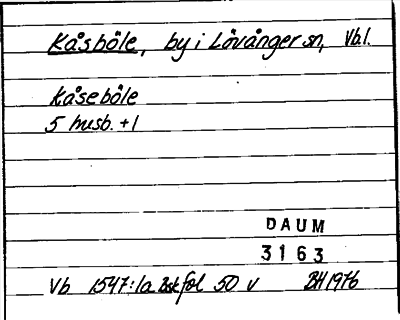 Kåsböle, by i Lövånger sn, Vb.l.
Kåseböle
5 husb. + 1
DAUM
3163
Vb 1547:1a Bskfol 50 v BH 1976